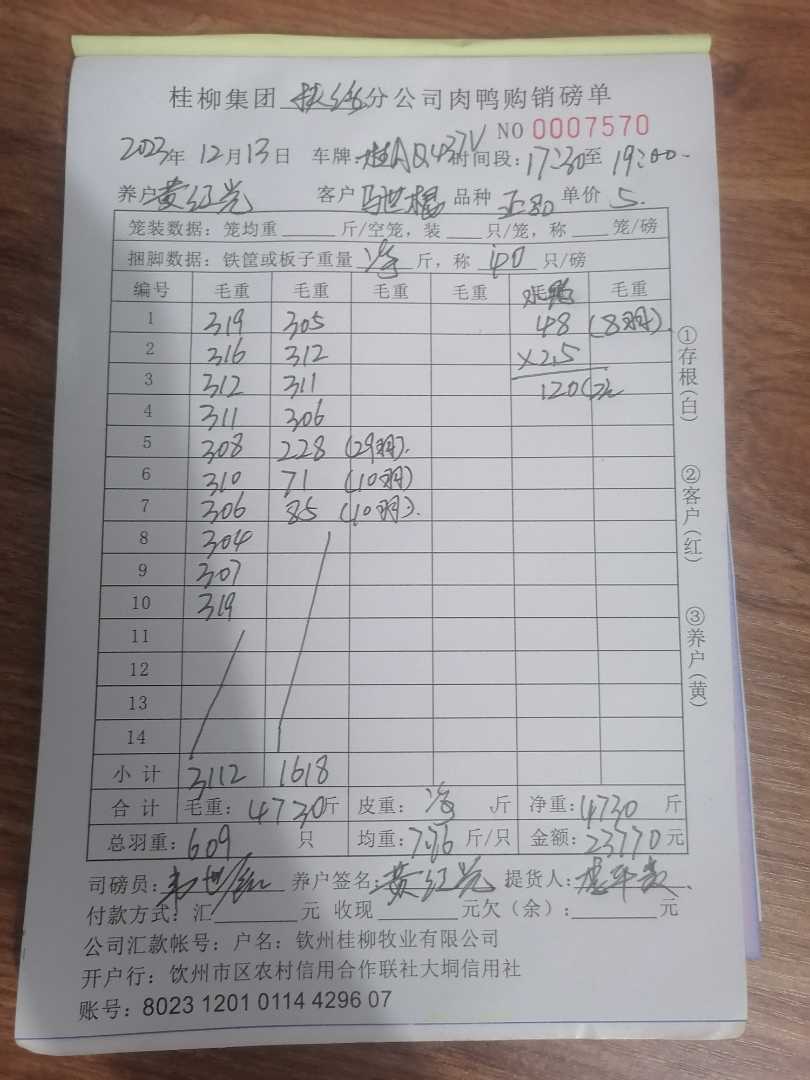 桂柳集团 分公司肉鸭购销磅单
NO 0007570
2023年 12月13日 车牌: 时间段:17:30至 19:00
养户 黄红光 客户 马世棍 品种 正80 单价 5.
笼装数据: 笼均重 斤/空笼, 装 只/笼, 称 笼/磅
捆脚数据: 铁筐或板子重量 净 斤, 称 40 只/磅
编号 毛重 毛重 毛重 毛重 毛重
1 319 305 48 (8羽).
2 316 312 ×2.5
3 312 311 120
4 311 306
5 308 228 (29羽).
6 310 71 (10羽)
7 306 85 (10羽).
8 304
9 307
10 319
11
12
13
14
小计 3112 1618
合计 毛重: 4730斤 皮重: 净 斤 净重:4730 斤
总羽重: 609 只 均重: 7.76 斤/只 金额: 23770 元
司磅员: 养户签名: 黄红光 提货人:
付款方式: 汇 元 收现 元欠(余): 元
公司汇款帐号: 户名: 钦州桂柳牧业有限公司
开户行: 钦州市区农村信用合作联社大垌信用社
账号: 8023 1201 0114 4296 07
①存根(白)
②客户(红)
③养户(黄)